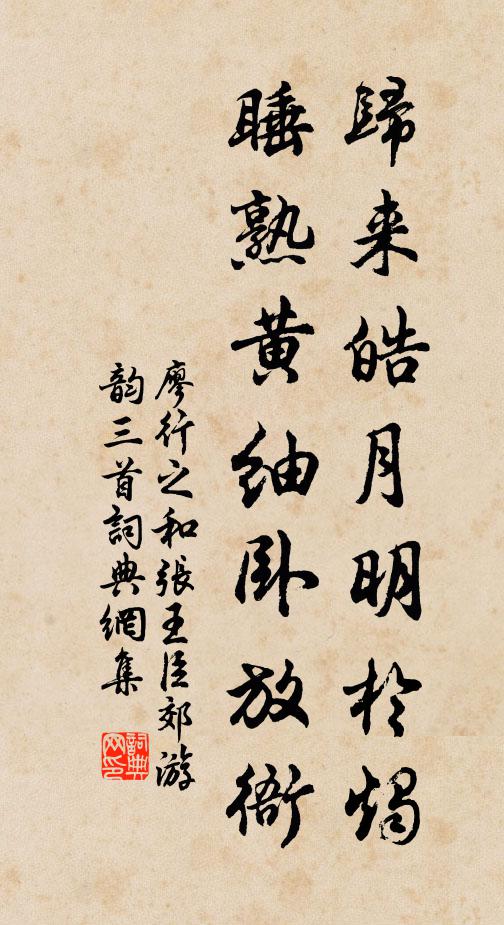 歸来皓月明於燭
睡熟黄紬卧放衙
廖行之和張王臣郊游
韵三首詞典網集
詞典網印